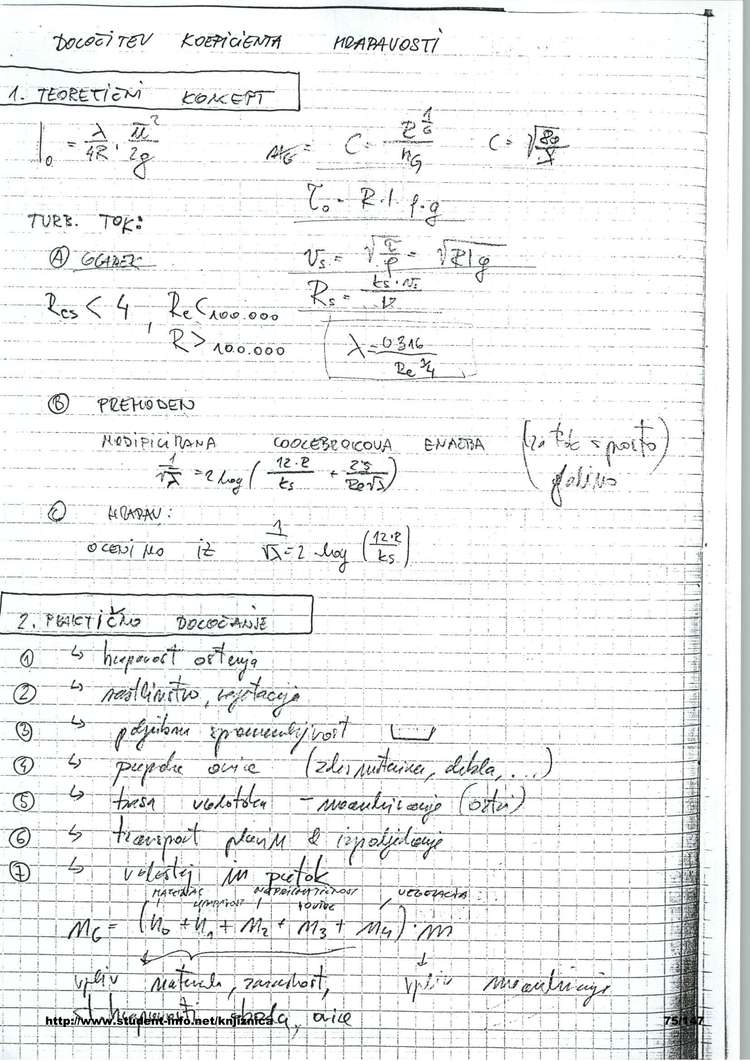 DOLOČITEV KOEFICIENTA HRAPAVOSTI
1. TEORETIČNI KONCEPT
I₀ = λ/4R · ū²/2g
C = R^(1/6)/n_G
C = √(8g/λ)
τ₀ = R·I·ρ·g
TURB. TOK:
Ⓐ GLADEK
v_s = √(τ/ρ) = √(RIg)
R_s = k_s·v_s/ν
Res < 4, Re < 100.000
R > 100.000
λ = 0.316/Re^(1/4)
Ⓑ PREHODEN
MODIFICIRANA COOLEBROKOVA ENAČBA
(za tok s prosto gladino)
1/√λ = 2 log (12·R/ks + 2.5/Re√λ)
Ⓒ HRAPAV:
OCENIMO IZ 1/√λ = 2 log (12·R/ks)
2. PRAKTIČNO DOLOČANJE
① ↳ hrapavost ostenja
② ↳ rastlinstvo, vegetacija
③ ↳ spremenljivost
④ ↳ ovire (debla, ...)
⑤ ↳ trasa vodotoka - meandriranje
⑥ ↳ transport plavin & izpodjedanje
⑦ ↳ vodostaj in pretok
MATERIAL OVIRE VEGETACIJA
n_G = (n₀ + n₁ + n₂ + n₃ + n₄) · m
vpliv materiala, zaraslost,
vpliv meandriranja
ovire
http://www.student-info.net/knjiznica
75/147